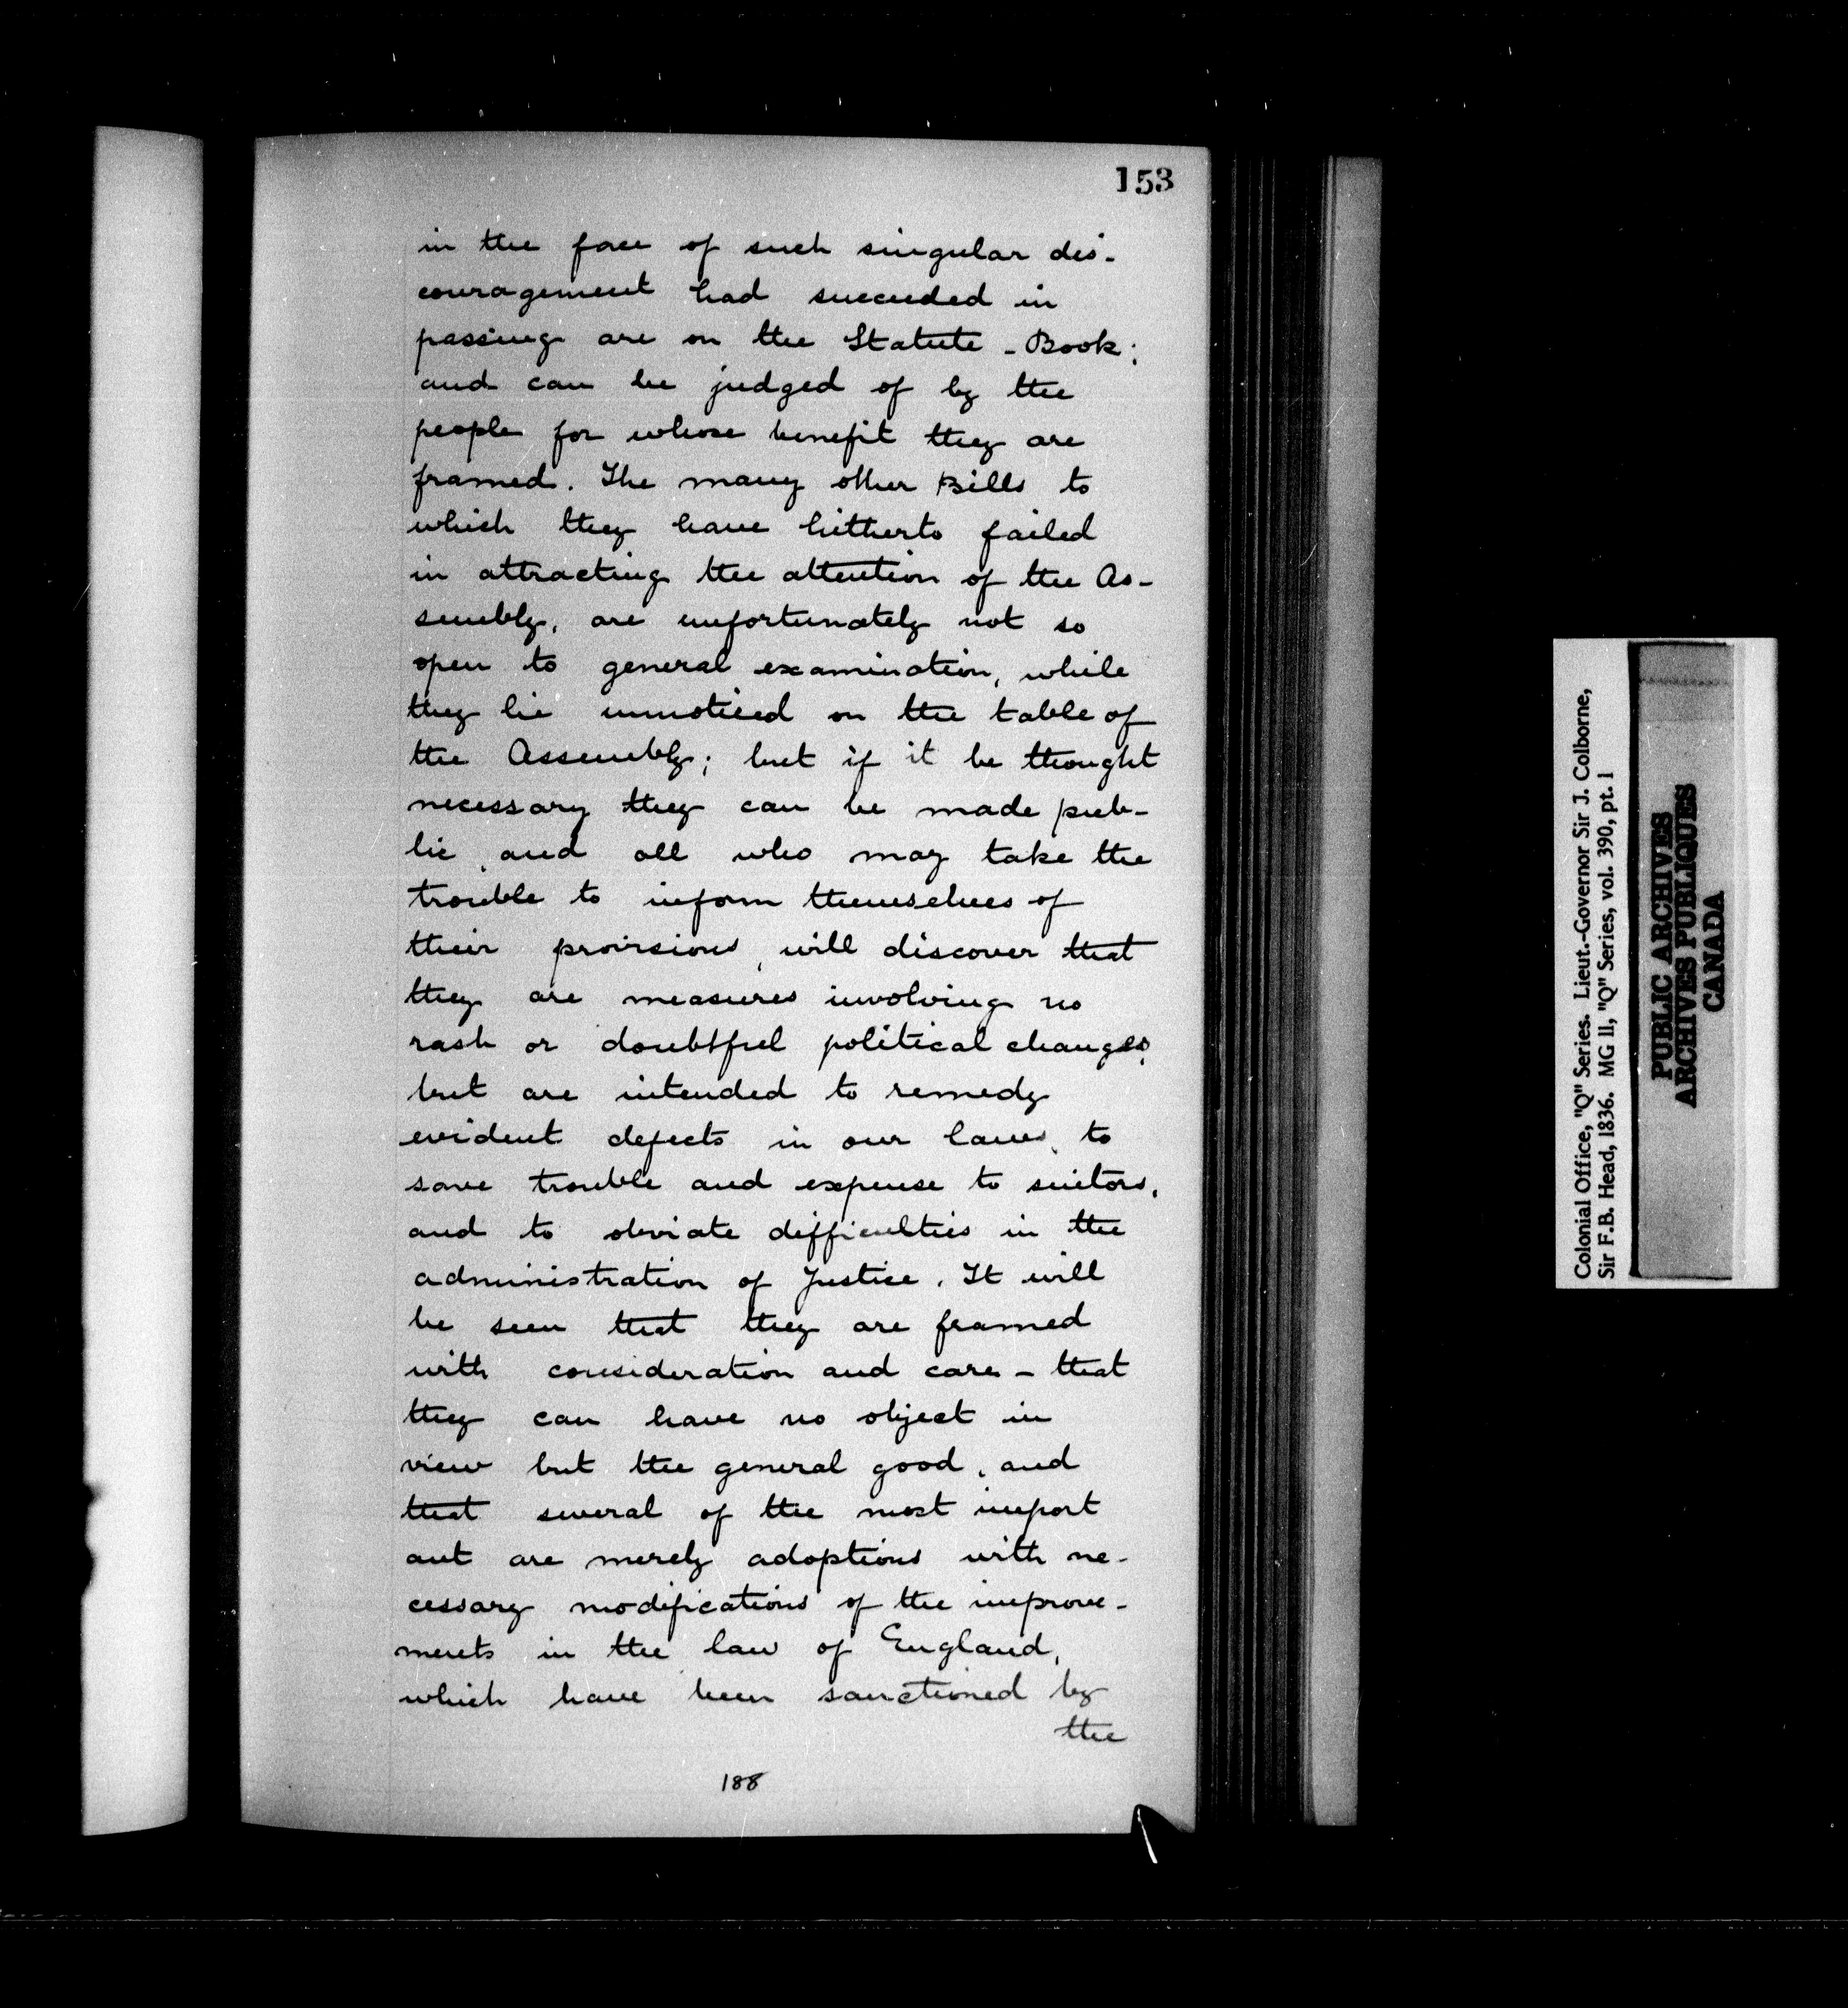 153
in the face of such singular dis-
couragement had succeeded in
passing are on the Statute-Book;
and can be judged of by the
people for whose benefit they are
framed. The many other Bills to
which they have hitherto failed
in attracting the attention of the As-
sembly, are unfortunately not so
open to general examination, while
they lie unnoticed on the table of
the Assembly; but if it be thought
necessary they can be made pub-
lic and all who may take the
trouble to inform themselves of
their provisions, will discover that
they are measures involving no
rash or doubtful political changes,
but are intended to remedy
evident defects in our laws, to
save trouble and expense to suitors,
and to obviate difficulties in the
administration of Justice. It will
be seen that they are framed
with consideration and care - that
they can have no object in
view but the general good, and
that several of the most import
ant are merely adoptions with ne-
cessary modifications of the improve-
ments in the law of England,
which have been sanctioned by
the
188
Colonial Office, "Q" Series. Lieut.-Governor Sir J. Colborne,
Sir F.B. Head, 1836. MG 11, "Q" Series, vol. 390, pt. 1
PUBLIC ARCHIVES
ARCHIVES PUBLIQUES
CANADA